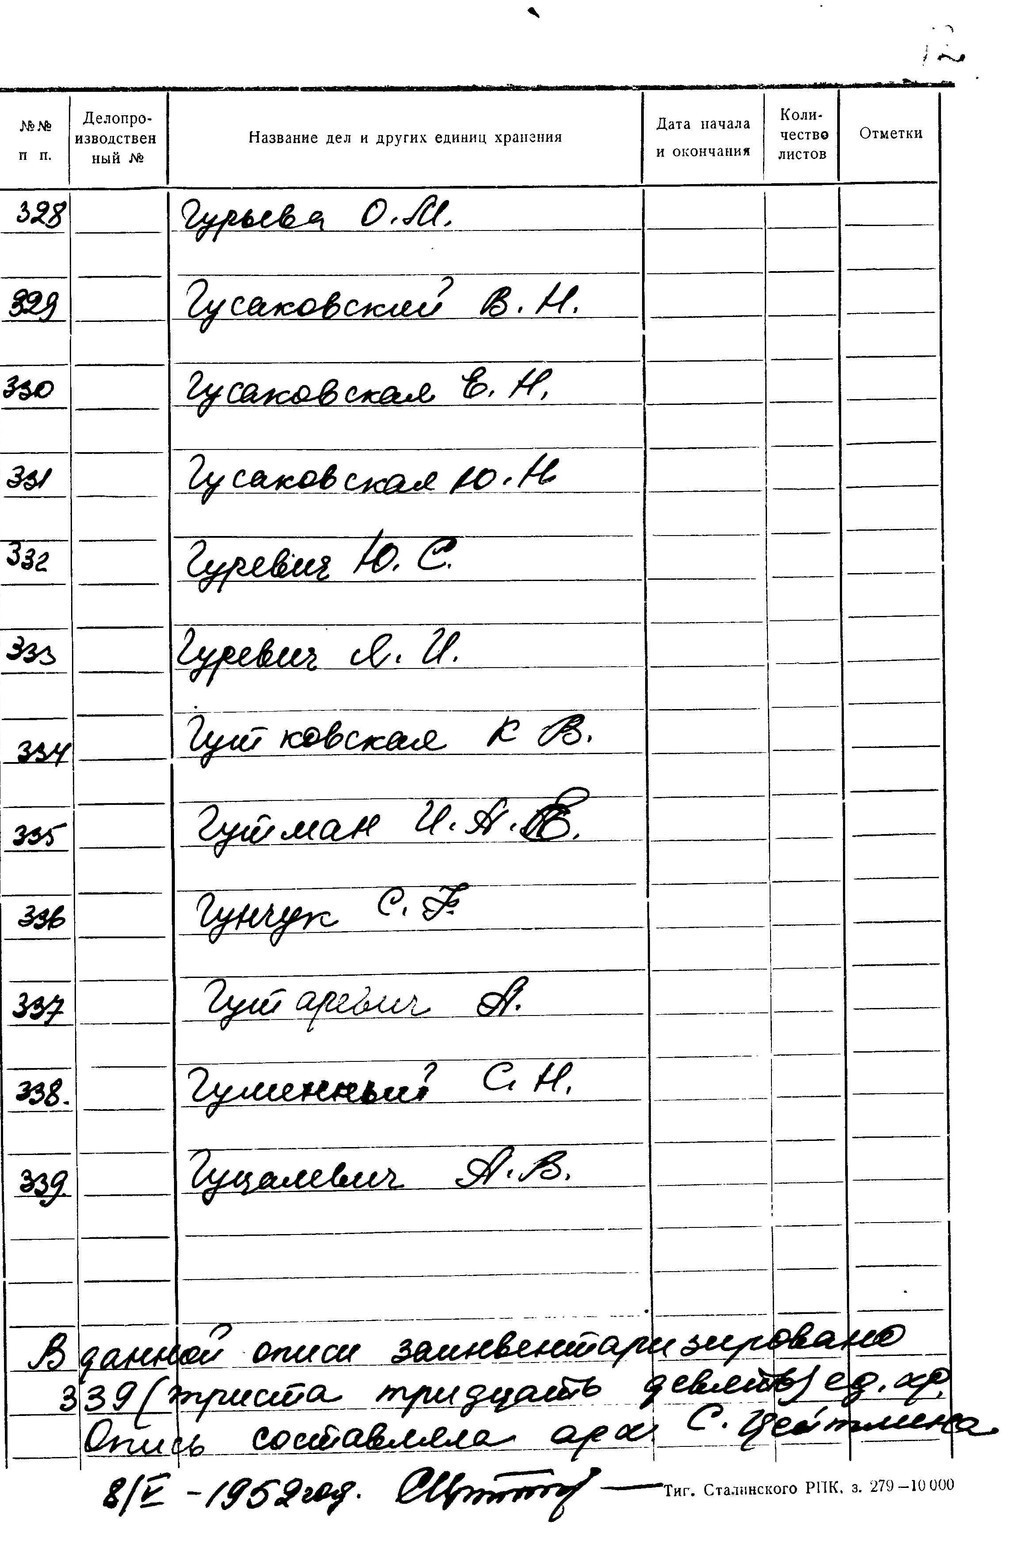 12
№№ п п.
Делопро-изводствен ный №
Название дел и других единиц хранения
Дата начала и окончания
Коли-чество листов
Отметки
328 Гурьева О.М.
329 Гусаковский В.Н.
330 Гусаковская Е.Н.
331 Гусаковская Ю.Н
332 Гуревич Ю.С.
333 Гуревич Я.И.
334 Гутковская К В.
335 Гутман И.А.
336 Гунчук С.
337 Гутаревич А.
338. Гуменный С.Н.
339. Гуцалевич А.В.
В данной описи заинвентаризировано
339 (триста тридцать девять) ед. хр.
Опись составляла арх. С. Цейтлина
8/V - 1952 год.
Тиг. Сталинского РПК, з. 279—10 000